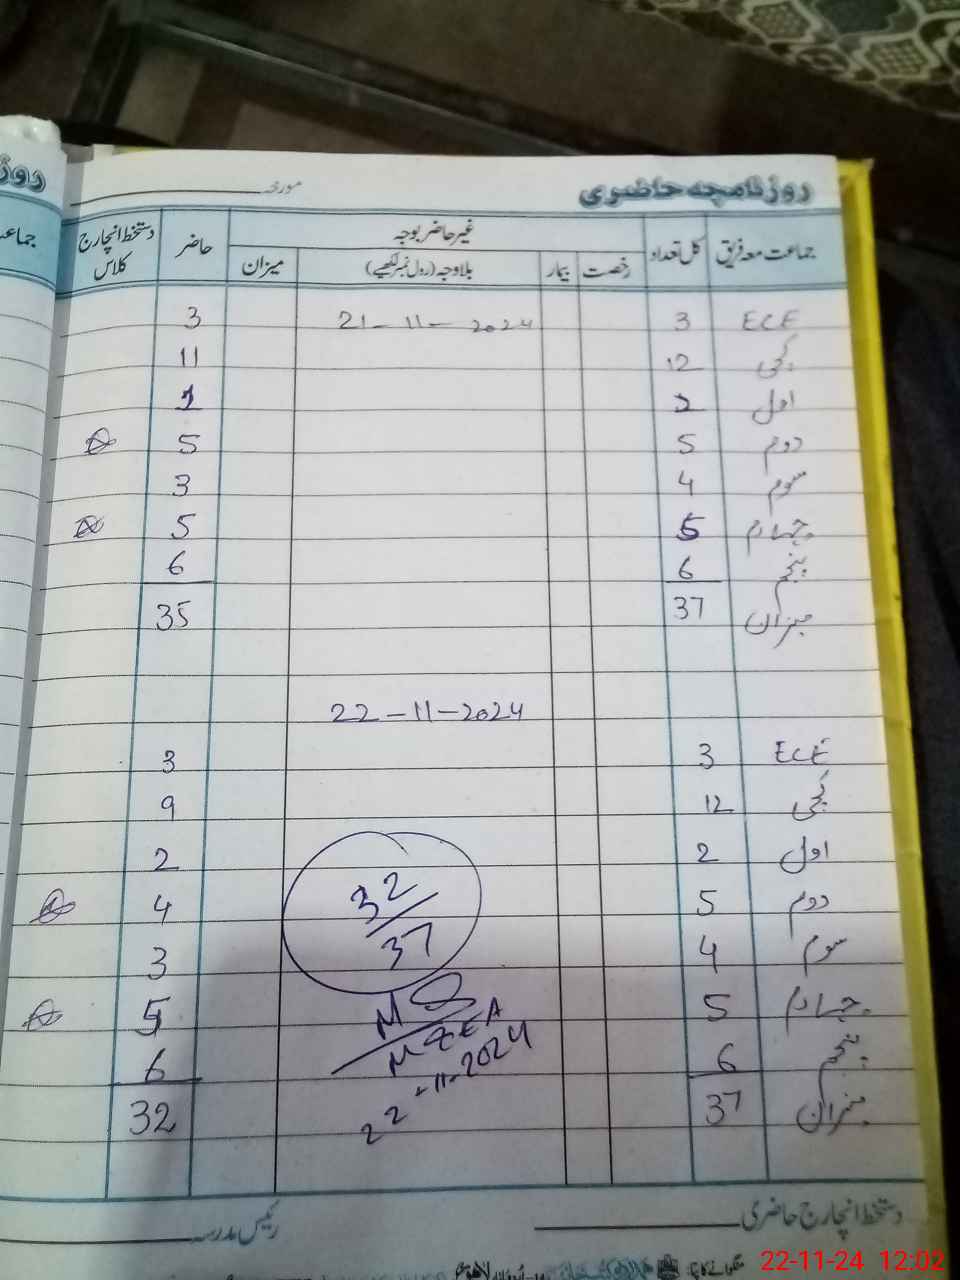 روزنامچہ حاضری مورخہ
جماعت معہ فریق کل تعداد غیر حاضر بوجہ حاضر دستخط انچارج کلاس
رخصت بیمار بلا وجہ (رول نمبر لکھیے) میزان
ECE 3 21-11-2024 3
کچی 12 11
اول 2 2
دوم 5 5
سوم 4 3
چہارم 5 5
پنجم 6 6
میزان 37 35
22-11-2024
ECE 3 3
کچی 12 9
اول 2 2
دوم 5 4
سوم 4 3
چہارم 5 5
پنجم 6 6
میزان 37 32
32/37
MEA
22-11-2024
دستخط انچارج حاضری رئیس مدرسہ
منگوانے کا پتہ: لاہور
22-11-24 12:02
روز
جماعت